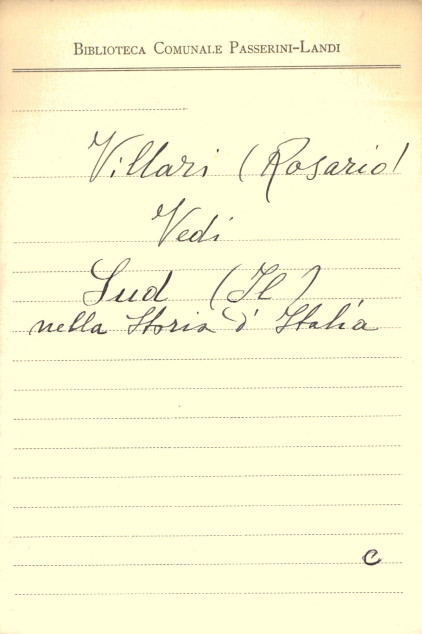 BIBLIOTECA COMUNALE PASSERINI-LANDI
Villari (Rosario)
Vedi
Sud (Il)
nella Storia d'Italia
C